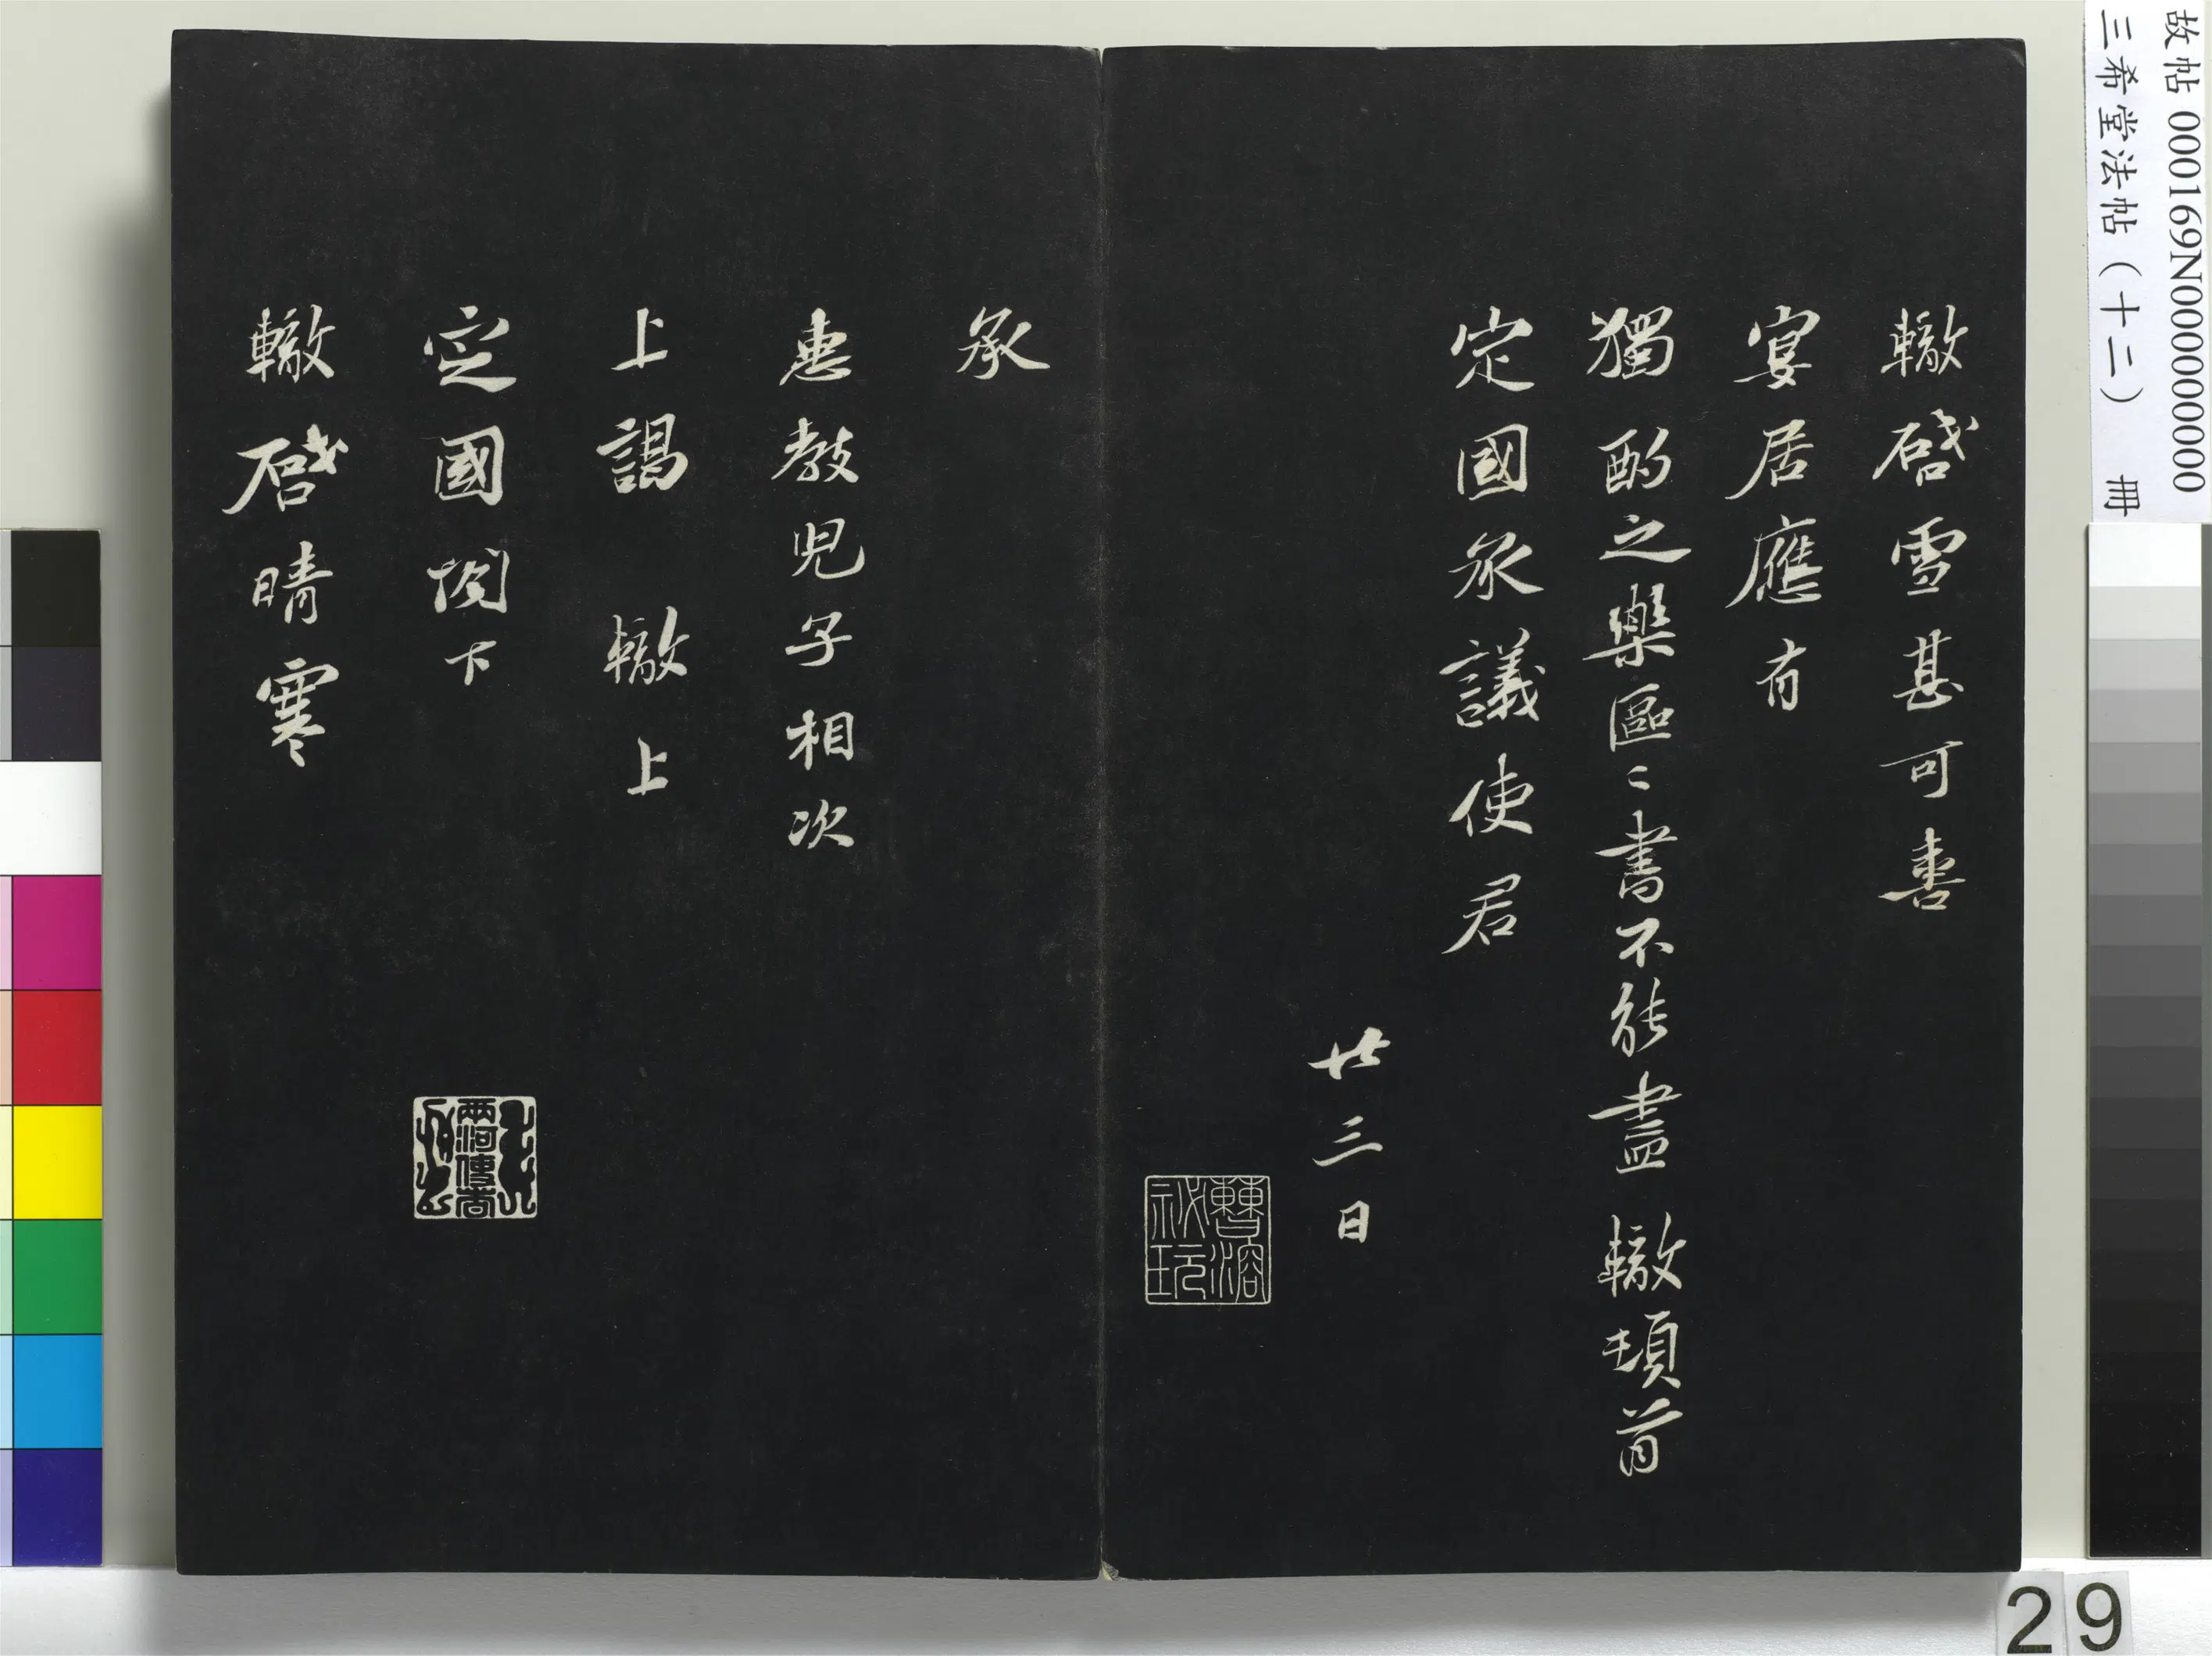 故帖 000169N000000000
三希堂法帖（十二） 冊
轍啓雪甚可喜
宴居應有
獨酌之樂區〻書不能盡 轍頓首
定國承議使君
廿三日
曹溶
祕玩
承
惠教兒子相次
上謁 轍上
定國閣下
轍啓晴寒
29